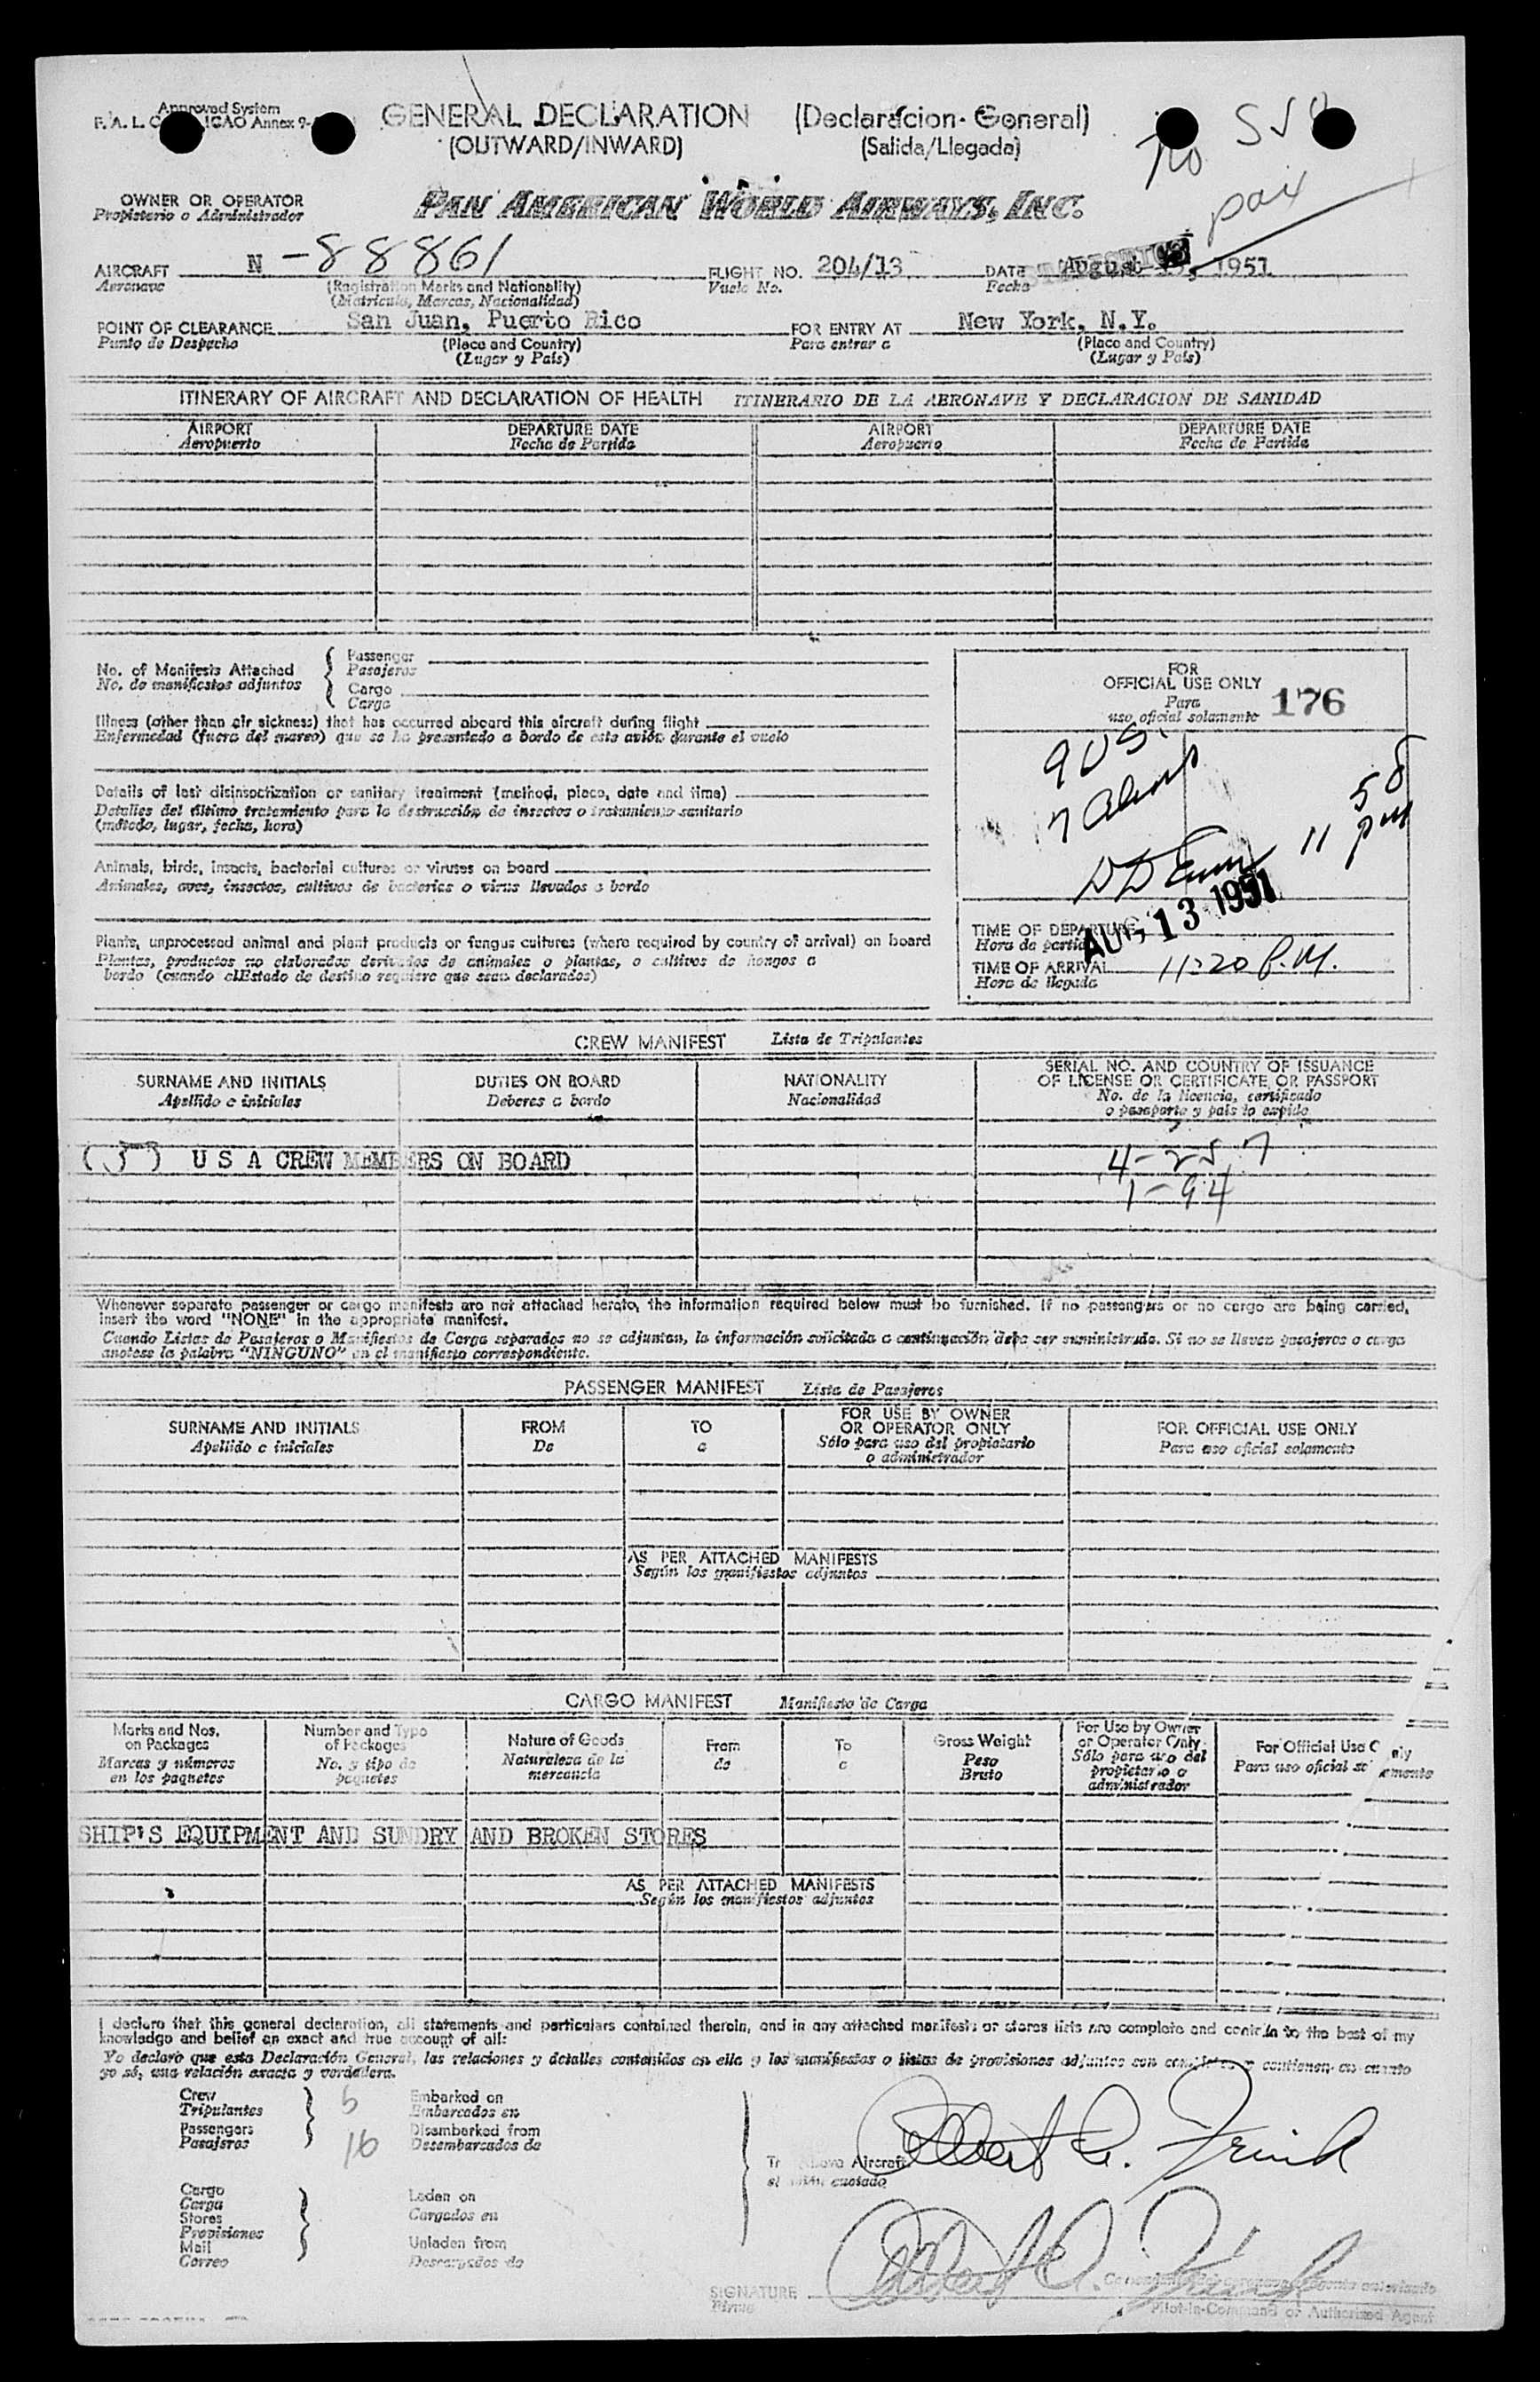 Approved System
GENERAL DECLARATION (Declaracion General)
(OUTWARD/INWARD) (Salida/Llegada)
No
pax
OWNER OR OPERATOR
Propietario o Administrador
PAN AMERICAN WORLD AIRWAYS, INC.
AIRCRAFT N-88861 FLIGHT NO. 204/13 DATE August 1951
Aeronave (Registration Marks and Nationality) Vuelo No. Fecha
(Matricula, Marcas, Nacionalidad)
POINT OF CLEARANCE San Juan, Puerto Rico FOR ENTRY AT New York, N.Y.
Punto de Despacho (Place and Country) Para entrar a (Place and Country)
(Lugar y País) (Lugar y País)
ITINERARY OF AIRCRAFT AND DECLARATION OF HEALTH ITINERARIO DE LA AERONAVE Y DECLARACION DE SANIDAD
AIRPORT DEPARTURE DATE AIRPORT DEPARTURE DATE
Aeropuerto Fecha de Partida Aeropuerto Fecha de Partida
No. of Manifests Attached
No. de manifiestos adjuntos
Passenger
Pasajeros
Cargo
Carga
Illness (other than air sickness) that has occurred aboard this aircraft during flight
Enfermedad (fuera del mareo) que se ha presentado a bordo de este avión durante el vuelo
Details of last disinsectization or sanitary treatment (method, place, date and time)
Detalles del último tratamiento para la destrucción de insectos o tratamiento sanitario
(método, lugar, fecha, hora)
Animals, birds, insects, bacterial cultures or viruses on board
Animales, aves, insectos, cultivos de bacterias o virus llevados a bordo
Plants, unprocessed animal and plant products or fungus cultures (where required by country of arrival) on board
Plantas, productos no elaborados derivados de animales o plantas, o cultivos de hongos a
bordo (cuando elEstado de destino requiere que sean declarados)
FOR
OFFICIAL USE ONLY
Para
uso oficial solamente
176
9 US.
7 Aliens
11 58
pm
AUG 13 1951
TIME OF DEPARTURE
Hora de partida
TIME OF ARRIVAL 11:20 P.M.
Hora de llegada
CREW MANIFEST Lista de Tripulantes
SURNAME AND INITIALS DUTIES ON BOARD NATIONALITY SERIAL NO. AND COUNTRY OF ISSUANCE
OF LICENSE OR CERTIFICATE OR PASSPORT
Apellido e iniciales Deberes a bordo Nacionalidad No. de la licencia, certificado
o pasaporte y pais lo expide
(5) U S A CREW MEMBERS ON BOARD
4-257
1-94
Whenever separate passenger or cargo manifests are not attached hereto, the information required below must be furnished. If no passengers or no cargo are being carried,
insert the word "NONE" in the appropriate manifest.
Cuando Listas de Pasajeros o Manifiestos de Carga separados no se adjuntan, la información solicitada a continuación debe ser suministrada. Si no se llevan pasajeros o carga
anotese la palabra "NINGUNO" en el manifiesto correspondiente.
PASSENGER MANIFEST Lista de Pasajeros
SURNAME AND INITIALS FROM TO FOR USE BY OWNER
OR OPERATOR ONLY FOR OFFICIAL USE ONLY
Apellido e iniciales De a Sólo para uso del propietario
o administrador Para uso oficial solamente
AS PER ATTACHED MANIFESTS
Según los manifiestos adjuntos
CARGO MANIFEST Manifiesto de Carga
Marks and Nos.
on Packages
Marcas y números
en los paquetes
Number and Type
of Packages
No. y tipo de
paquetes
Nature of Goods
Naturaleza de la
mercancia
From
de
To
a
Gross Weight
Peso
Bruto
For Use by Owner
or Operator Only
Sólo para uso del
propietario o
administrador
For Official Use Only
Para uso oficial solamente
SHIP'S EQUIPMENT AND SUNDRY AND BROKEN STORES
AS PER ATTACHED MANIFESTS
Según los manifiestos adjuntos
I declare that this general declaration, all statements and particulars contained therein, and in any attached manifests or stores lists are complete and contain to the best of my
knowledge and belief an exact and true account of all:
Yo declaro que esta Declaración General, las relaciones y detalles contenidos en ella y los manifiestos o listas de provisiones adjuntos son completos y contienen en cuanto
yo sé, una relación exacta y verdadera.
Crew
Tripulantes
5
Embarked on
Embarcados en
Passengers
Pasajeros
16
Disembarked from
Desembarcados de
Aircraft
Cargo
Carga
Stores
Provisiones
Mail
Correo
Laden on
Cargados en
Unladen from
Descargados de
SIGNATURE
Firma
Pilot-in-Command or Authorized Agent